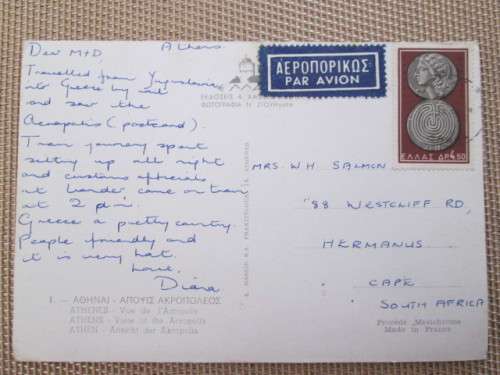 Athens
Dear M+D,
Travelled from Yugoslavia
into Greece by rail
and saw the
Acropolis (postcard).
Train journey spent
sitting up all night
and customs officials
at border came on train
at 2 p.m.
Greece a pretty country.
People friendly and
it is very hot.
Love.
Diana
1. — ΑΘΗΝΑΙ - ΑΠΟΨΙΣ ΑΚΡΟΠΟΛΕΩΣ
ATHENES - Vue de l'Acropole
ATHENS - View to the Acropolis
ATHEN - Ansicht der Akropolis
ΑΕΡΟΠΟΡΙΚΩΣ
PAR AVION
ΕΛΛΑΣ ΔΡ 4.50
MRS. W.H. SALMON
88 WESTCLIFF RD,
HERMANUS.
CAPE
SOUTH AFRICA
Made in France